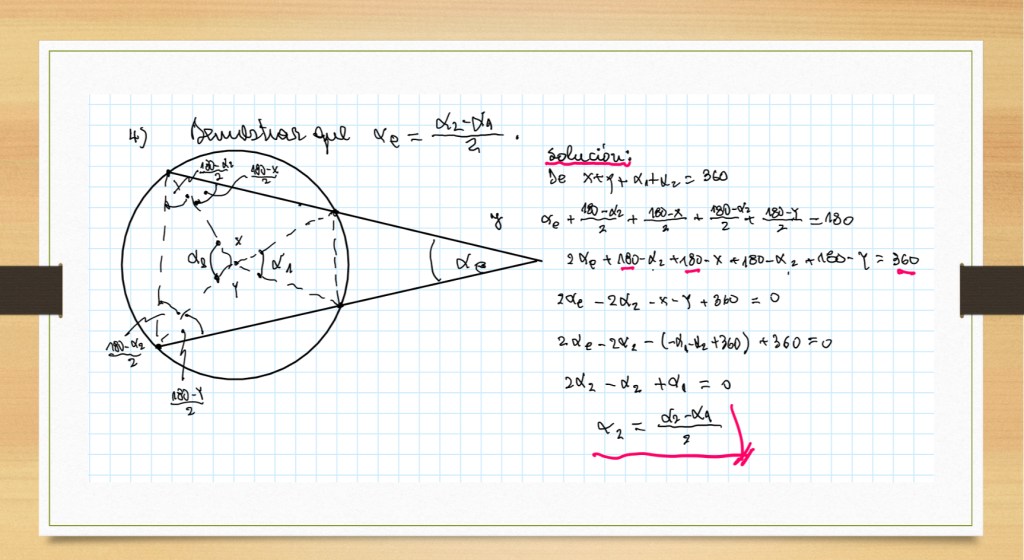 4) Demostrar que αe = (α2-α1)/2 .
(180-α2)/2
(180-x)/2
α2
x
y
α1
αe
(180-α2)/2
(180-y)/2
y
solución:
De x+y+α1+α2 = 360
αe + (180-α2)/2 + (180-x)/2 + (180-α2)/2 + (180-y)/2 = 180
2αe + 180-α2 + 180-x + 180-α2 + 180-y = 360
2αe - 2α2 - x - y + 360 = 0
2αe - 2α2 - (-α1-α2+360) + 360 = 0
2α2 - α2 + α1 = 0
α2 = (α2-α1)/2